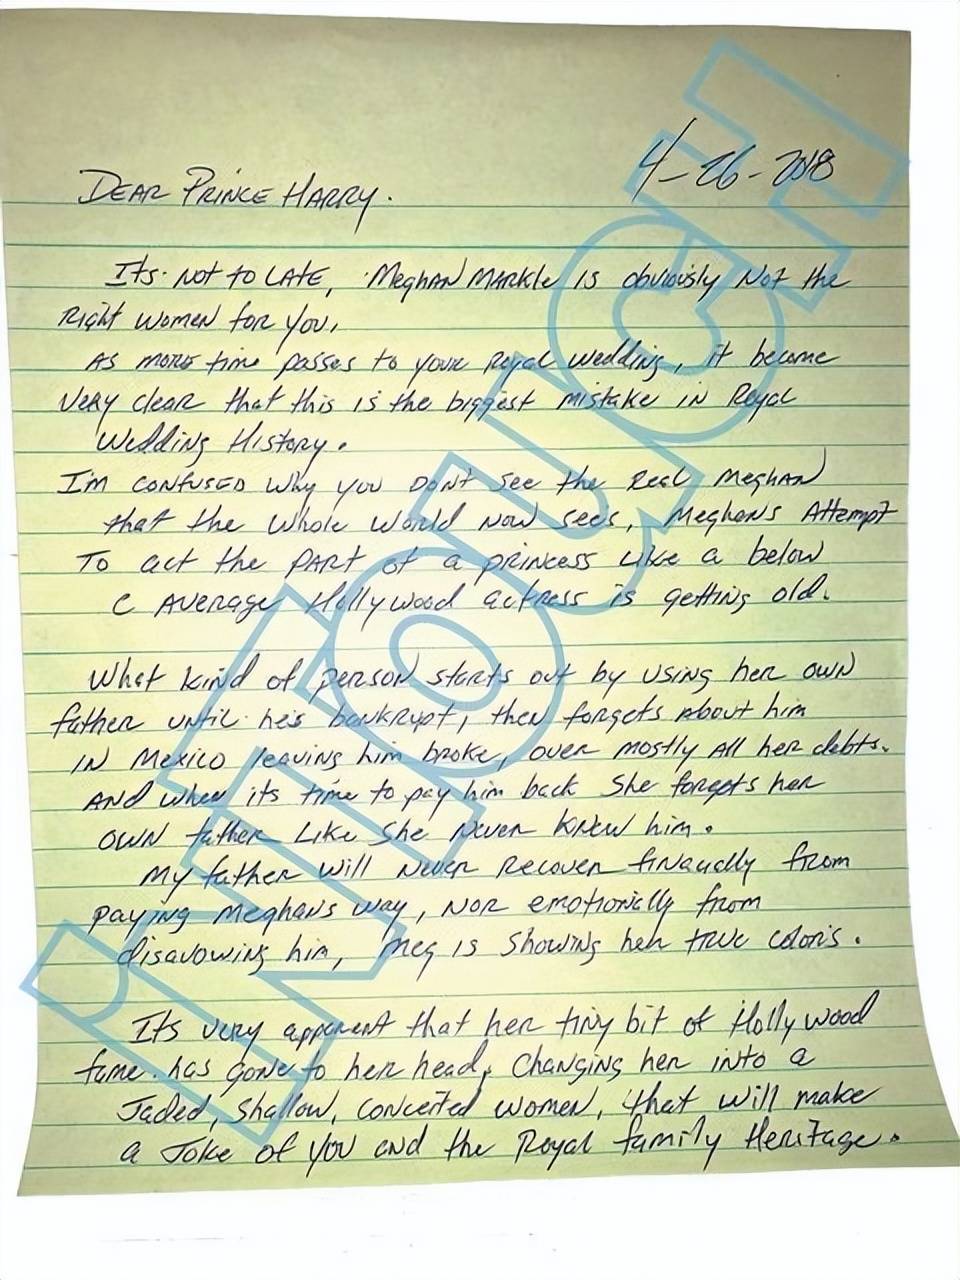 4-26-2018
DEAR PRINCE HARRY.
Its. NOT TO LATE, MegHAN MARKle IS obviously Not the
Right WOMEN for YOU,
AS MORE time passes to your Royal wedding, it become
Very clear that this is the biggest mistake in Royal
Wedding History.
I'M CONFUSED Why YOU DON'T See the Real MegHAN
that the whole world NOW sees, Meghans Attempt
TO act the PART of a princess Like a below
C AVERAGE Hollywood actress is getting old.
What kind of person starts out by using her OWN
father until he's bankrupt, then forgets About him
IN Mexico leaving him broke, over mostly All her debts.
AND when its time to pay him back She forgets her
OWN father Like She Never KNEW him.
My father will Never Recover finacially from
paying Meghans way, NOR emotionally from
disavowing him, Meg is Showing her true colors.
Its very apparent that her tiny bit of Hollywood
fame. has gone to her head, Changing her into a
Jaded, Shallow, conceited women, that will make
a Joke of YOU and the Royal family Heritage.
IN TOUCH